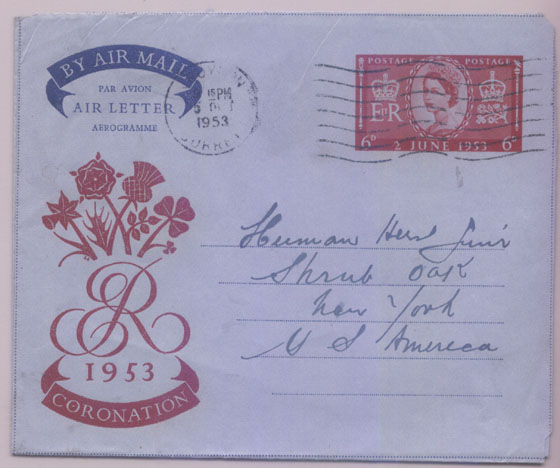 BY AIR MAIL
PAR AVION
AIR LETTER
AEROGRAMME
15PM
5
1953
SURREY
POSTAGE POSTAGE
E R
6D 2 JUNE 1953 6D
Herman
Shrub Oak
New York
U S Amereca
ER
1953
CORONATION